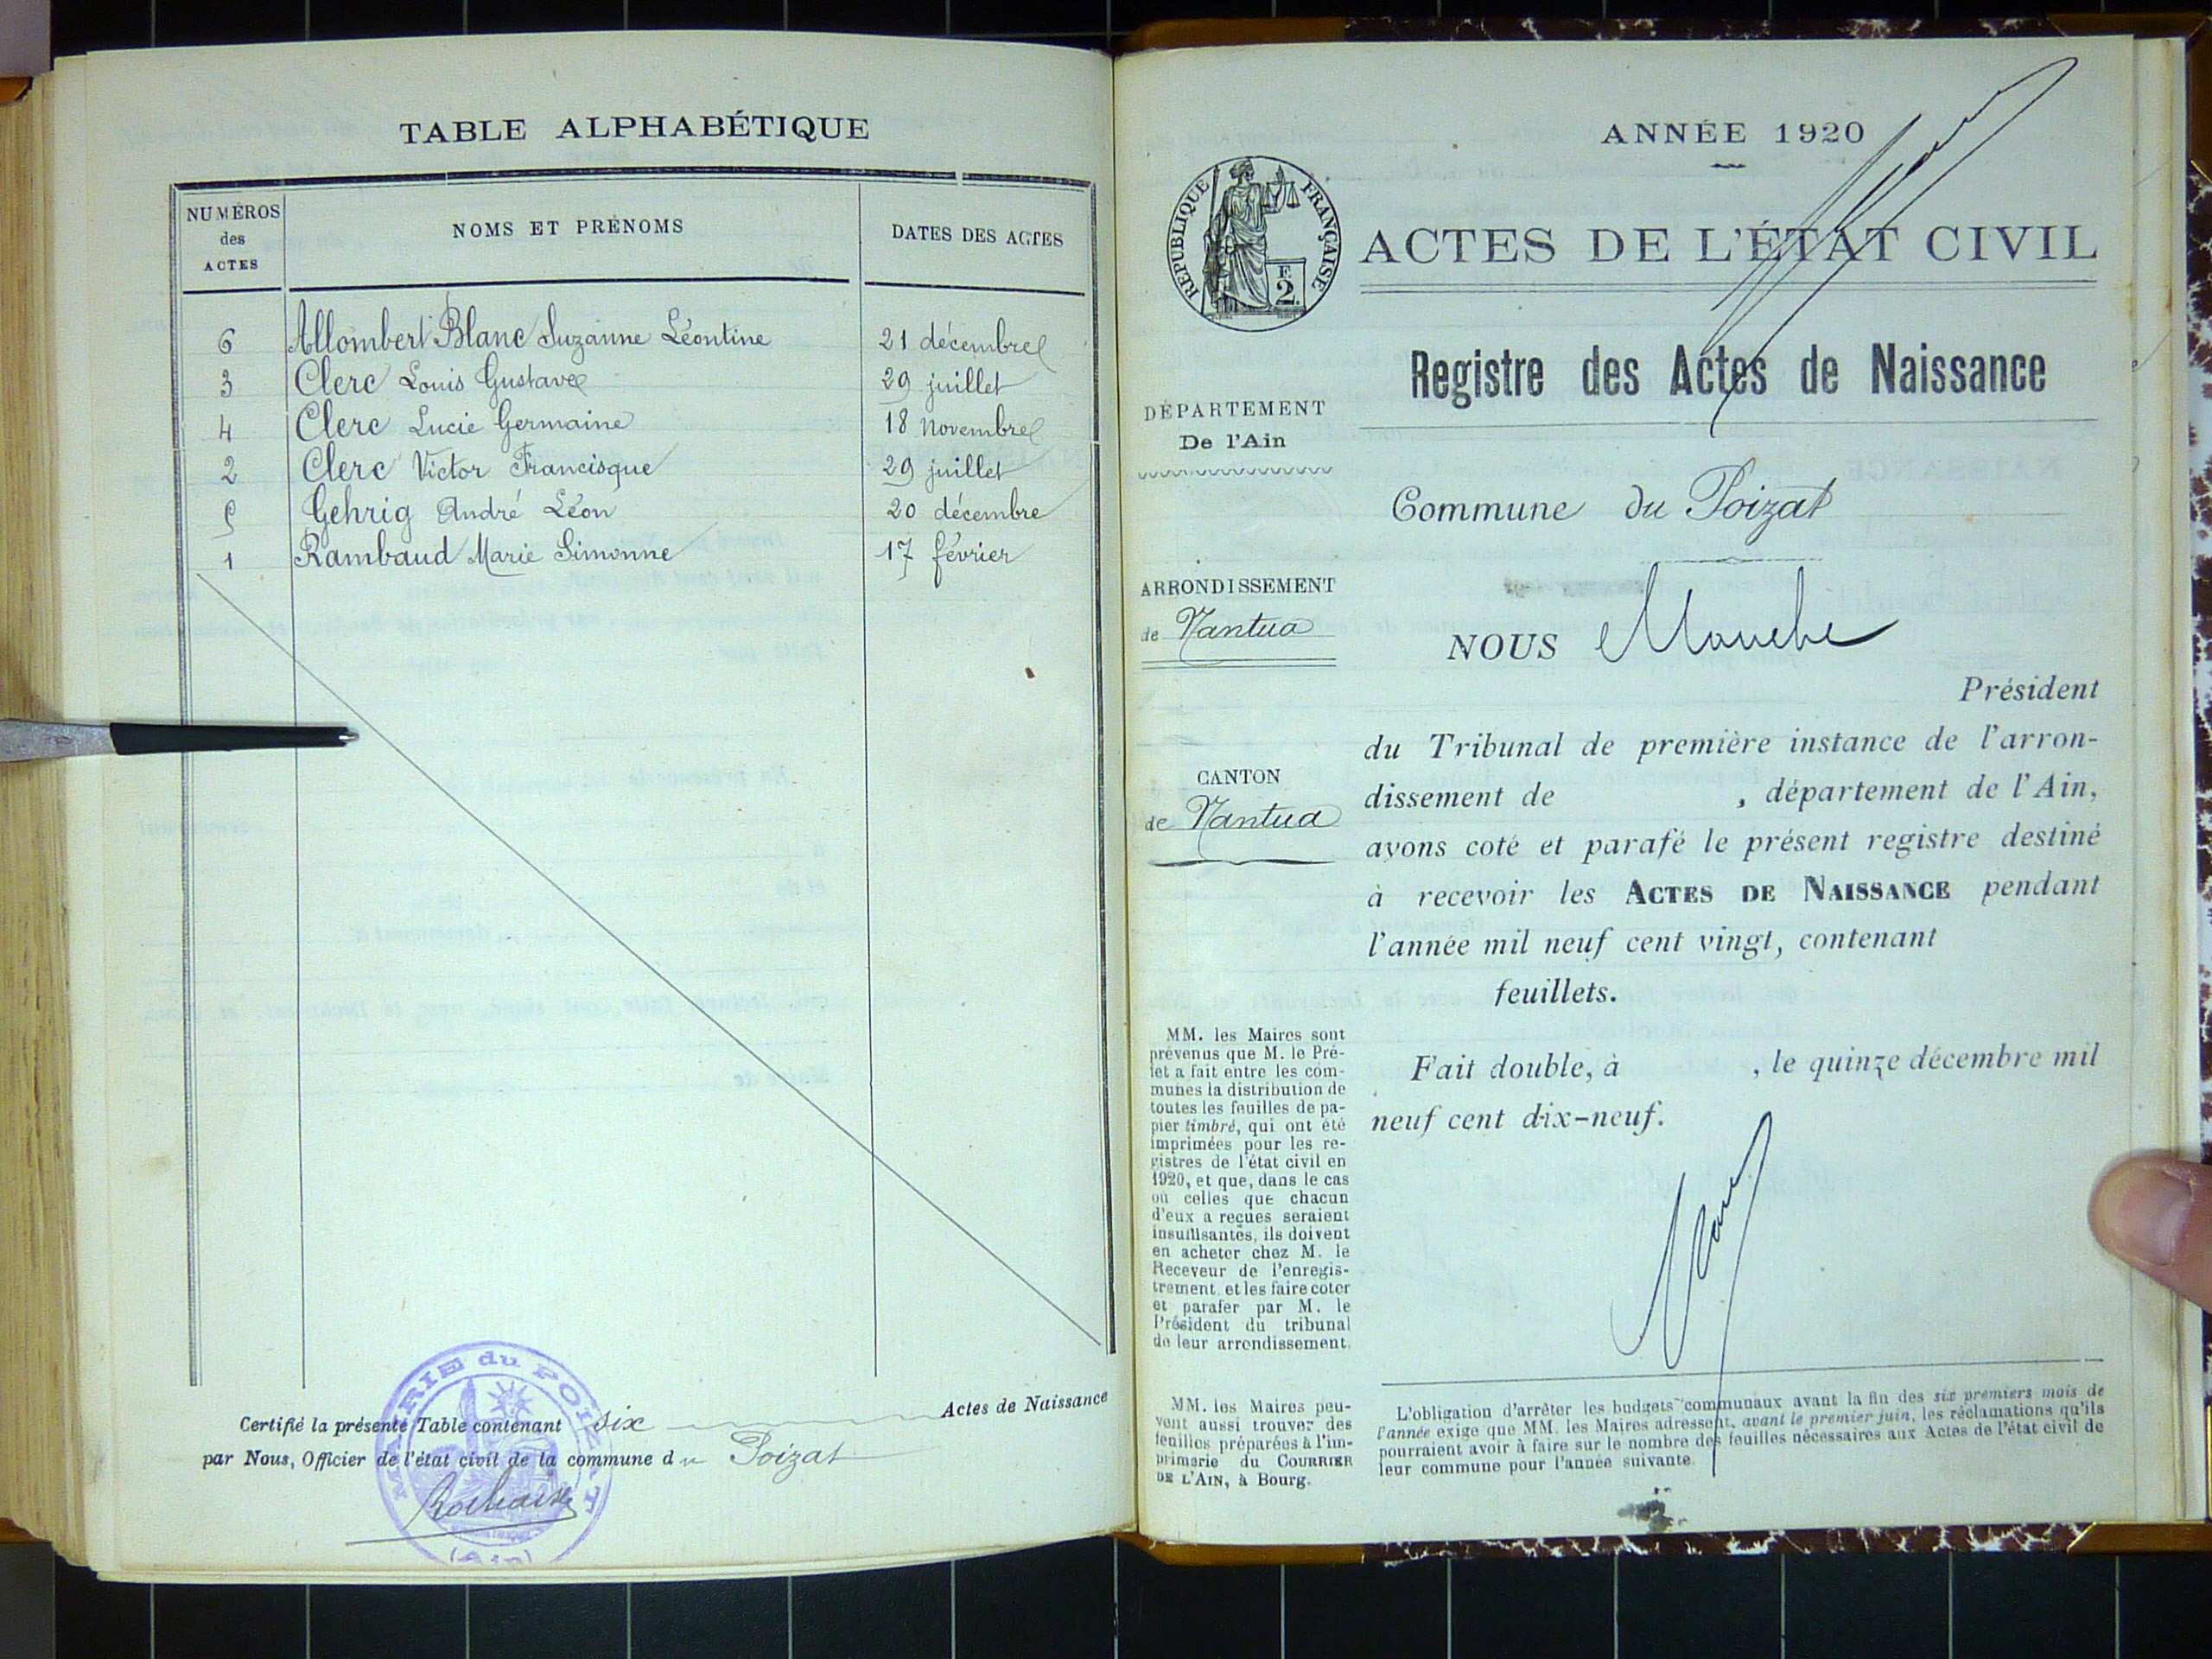 TABLE ALPHABÉTIQUE
NUMÉROS
des
ACTES
NOMS ET PRÉNOMS
DATES DES ACTES
6 Allombert Blanc Suzanne Léontine 21 décembre
3 Clerc Louis Gustave 29 juillet
4 Clerc Lucie Germaine 18 Novembre
2 Clerc Victor Francisque 29 juillet
5 Gehrig André Léon 20 décembre
1 Rambaud Marie Simonne 17 février
Certifié la présente Table contenant six Actes de Naissance
par Nous, Officier de l'état civil de la commune du Poizat
MAIRIE du POIZAT
(Ain)
ANNÉE 1920
RÉPUBLIQUE FRANÇAISE
F.
2.
ACTES DE L'ÉTAT CIVIL
Registre des Actes de Naissance
DÉPARTEMENT
De l'Ain
Commune du Poizat
ARRONDISSEMENT
de Nantua
NOUS
Président
du Tribunal de première instance de l'arron-
dissement de , département de l'Ain,
avons coté et parafé le présent registre destiné
à recevoir les ACTES DE NAISSANCE pendant
l'année mil neuf cent vingt, contenant
feuillets.
Fait double, à , le quinze décembre mil
neuf cent dix-neuf.
CANTON
de Nantua
MM. les Maires sont
prévenus que M. le Pré-
fet a fait entre les com-
munes la distribution de
toutes les feuilles de pa-
pier timbré, qui ont été
imprimées pour les re-
gistres de l'état civil en
1920, et que, dans le cas
où celles que chacun
d'eux a reçues seraient
insuffisantes, ils doivent
en acheter chez M. le
Receveur de l'enregis-
trement, et les faire coter
et parafer par M. le
Président du tribunal
de leur arrondissement.
MM. les Maires peu-
vent aussi trouver des
feuilles préparées à l'im-
primerie du COURRIER
DE L'AIN, à Bourg.
L'obligation d'arrêter les budgets communaux avant la fin des six premiers mois de
l'année exige que MM. les Maires adressent, avant le premier juin, les réclamations qu'ils
pourraient avoir à faire sur le nombre des feuilles nécessaires aux Actes de l'état civil de
leur commune pour l'année suivante.